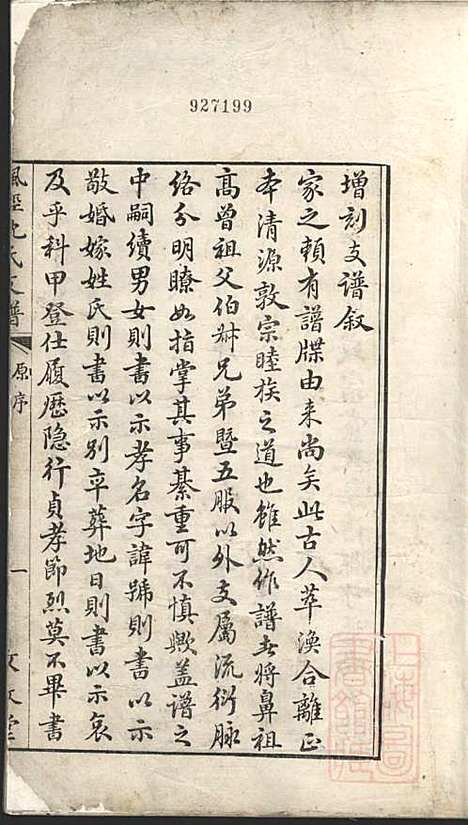 927199
增刻支譜叙
家之頼有譜牒由来尚矣此古人萃渙合離正
本清源敦宗睦族之道也雖然作譜者將鼻祖
高曾祖父伯叔兄弟暨五服以外支屬流衍脉
絡分明瞭如指掌其事綦重可不慎歟盖譜之
中嗣續男女則書以示孝名字諱號則書以示
敬婚嫁姓氏則書以示别卒葬地日則書以示哀
及乎科甲登仕履歷隐行貞孝節烈莫不畢書
氏支譜
原序
一